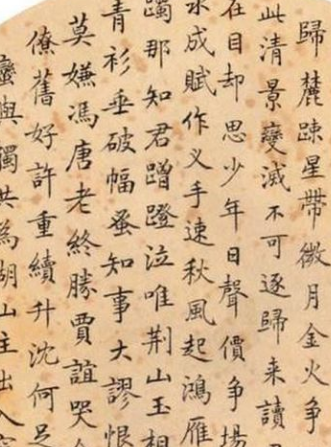 歸麓疎星帶微月金火爭
此清景變滅不可逐歸來讀
在目却思少年日聲價爭場
成賦作义手速秋風起鴻雁
躅那知君蹭蹬泣唯荆山玉相
青衫垂破幅蚤知事大謬恨
莫嫌馮唐老終勝賈誼哭今
僚舊好許重續升沈何足
與獨共為湖山主出入